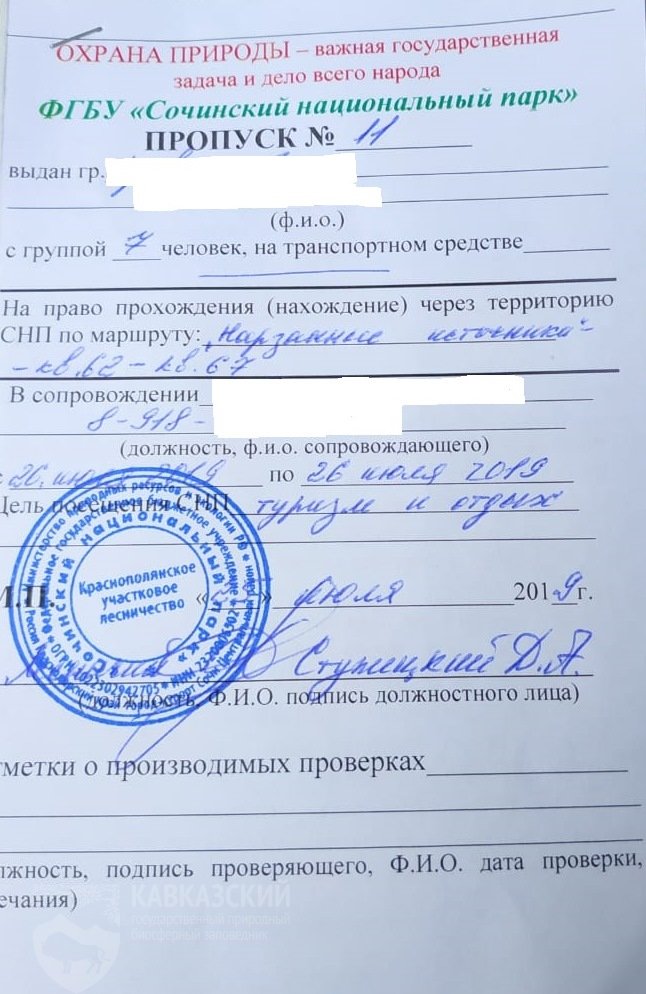 ОХРАНА ПРИРОДЫ – важная государственная
задача и дело всего народа
ФГБУ «Сочинский национальный парк»
ПРОПУСК № 11
выдан гр.
(ф.и.о.)
с группой 7 человек, на транспортном средстве
На право прохождения (нахождение) через территорию
СНП по маршруту: „Нарзанные источники"-
-кв.62-кв.67
В сопровождении
8-918-
(должность, ф.и.о. сопровождающего)
с 26. июля 2019 по 26 июля 2019
Цель посещения СНП туризм и отдых
М.П.
Краснополянское
участковое
лесничество
« » июля 2019г.
Ступицкий Д.А.
(должность, Ф.И.О. подпись должностного лица)
тметки о производимых проверках
лжность, подпись проверяющего, Ф.И.О. дата проверки,
ечания)
КАВКАЗСКИЙ
государственный природный
биосферный заповедник